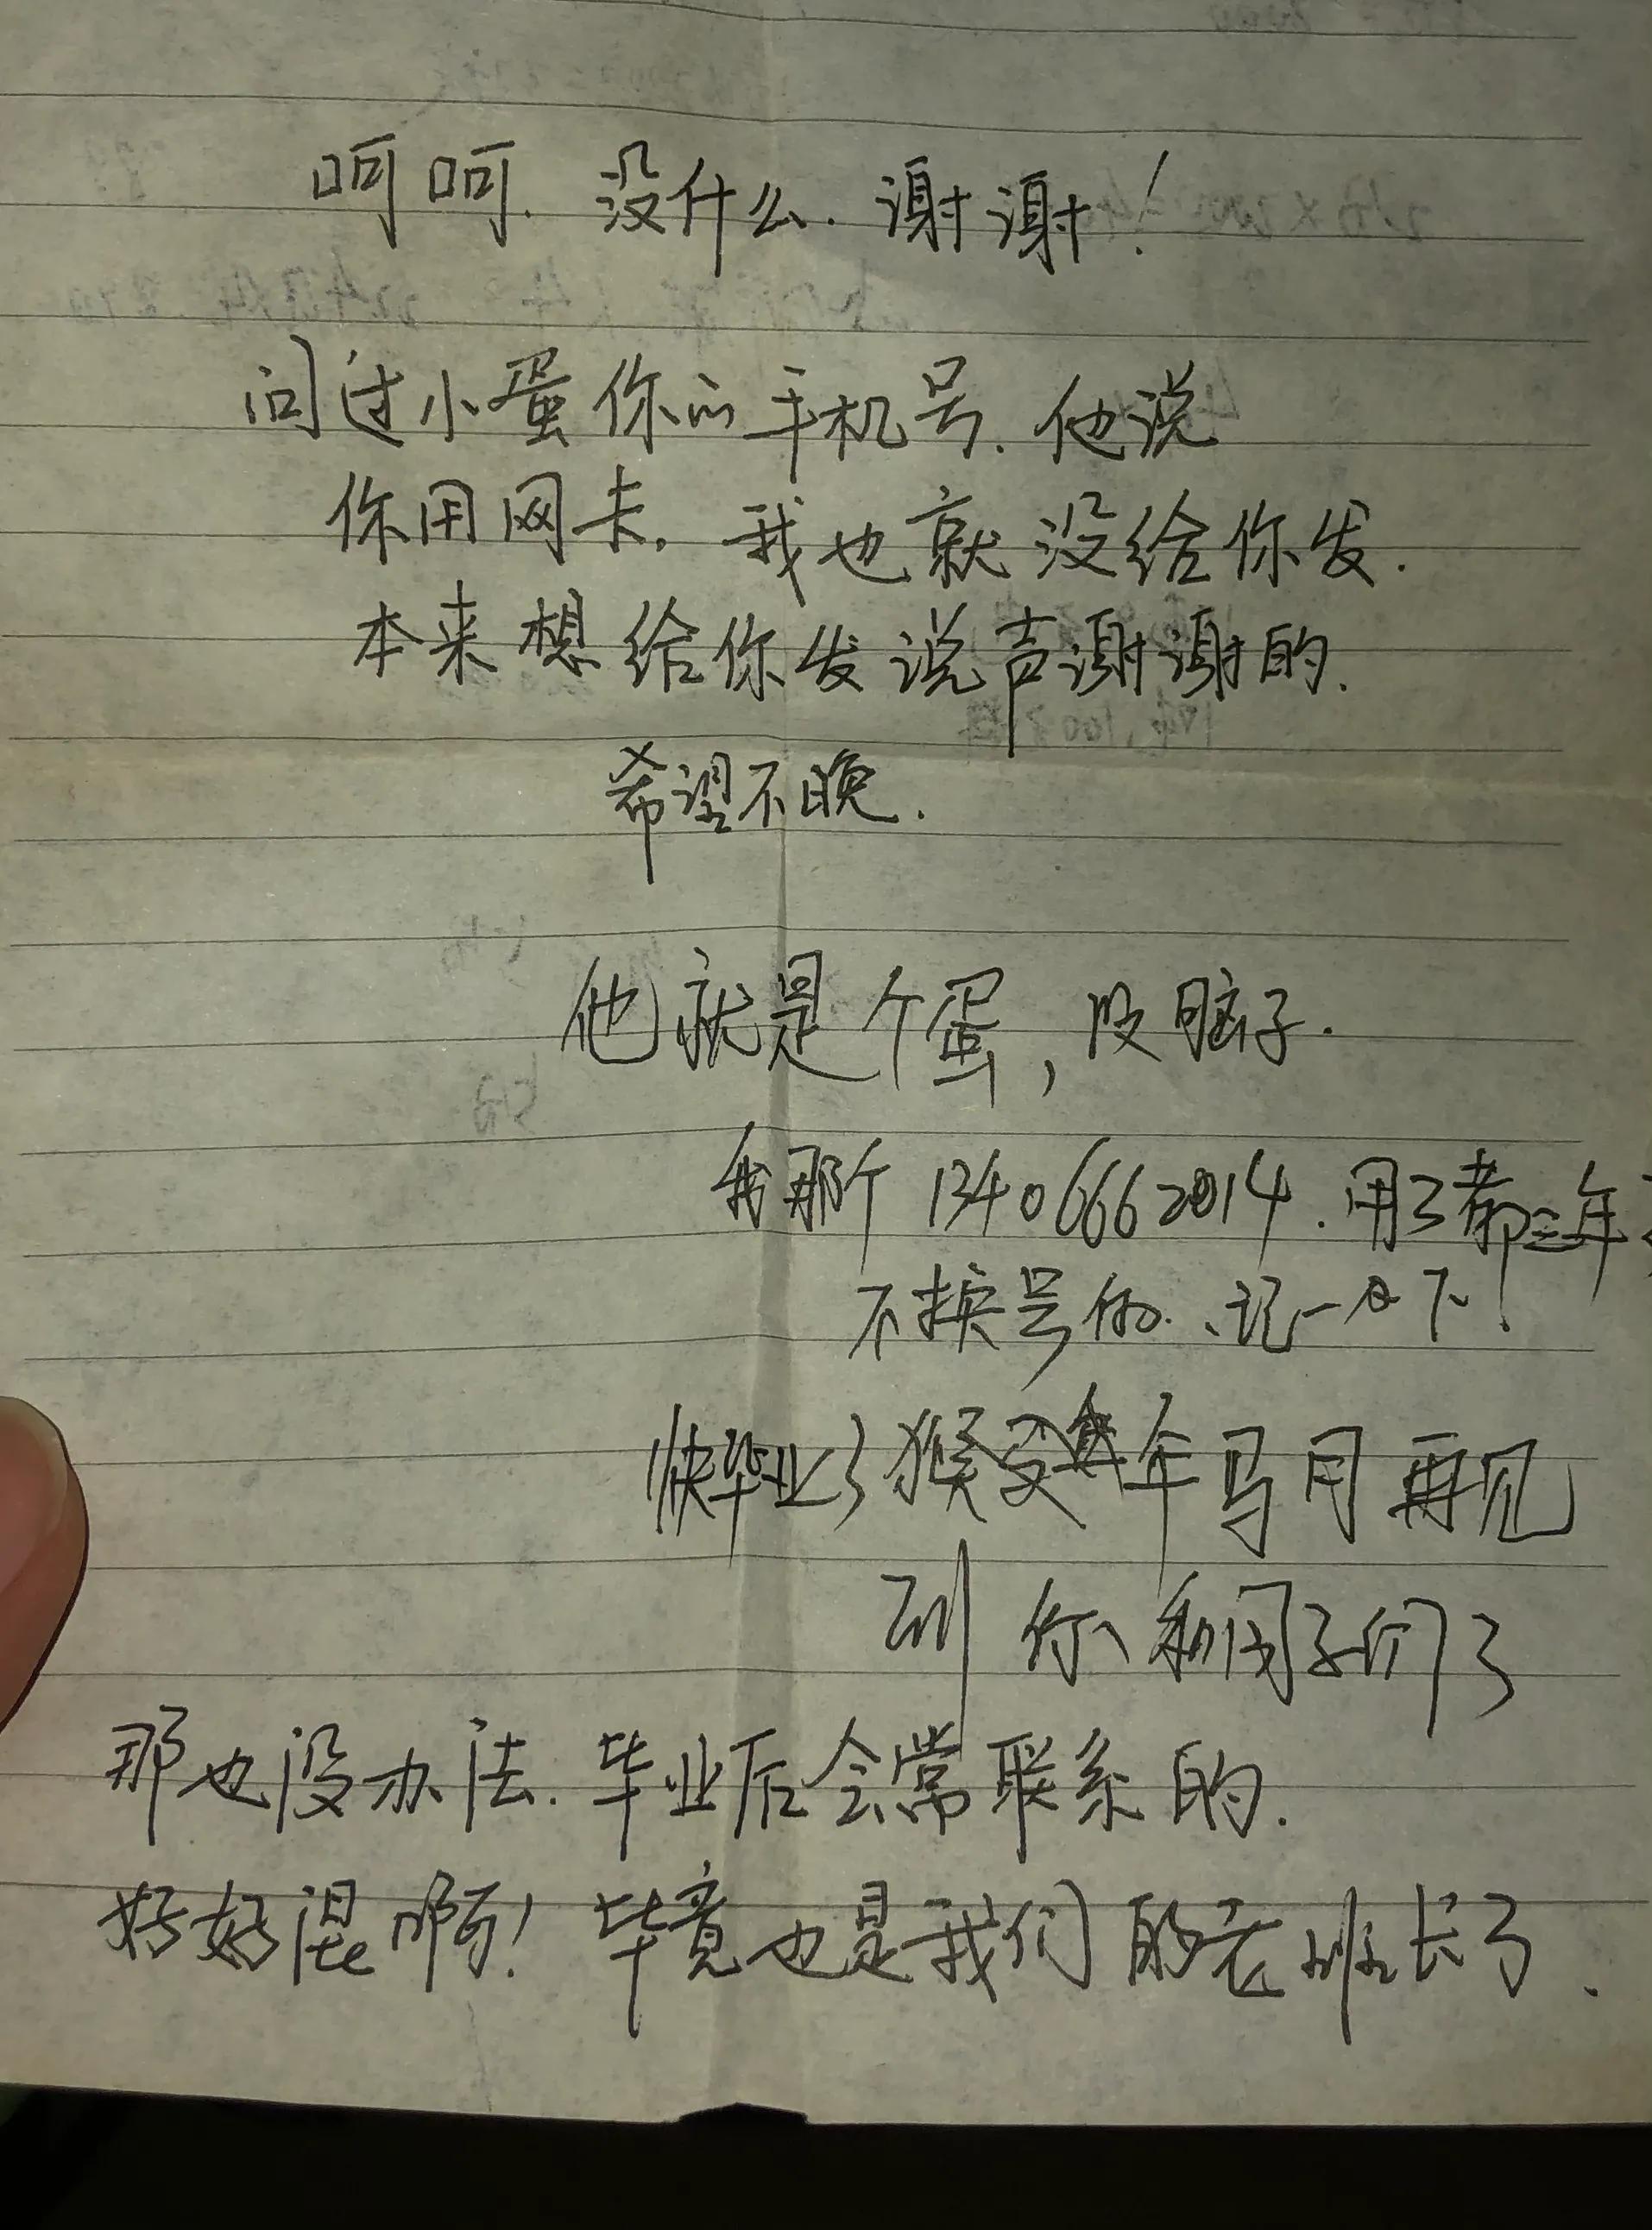 呵呵.没什么.谢谢!
问过小蛋你的手机号.他说
你用网卡.我也就没给你发.
本来想给你发说声谢谢的.
希望不晚.
他就是个蛋,没脑子.
我那个 13406662014.用了都三年
不换号的.记一下!
快毕业了猴年马月再见
到你和同子们了
那也没办法.毕业后会常联系的.
好好混啊!毕竟也是我们的老班长了.